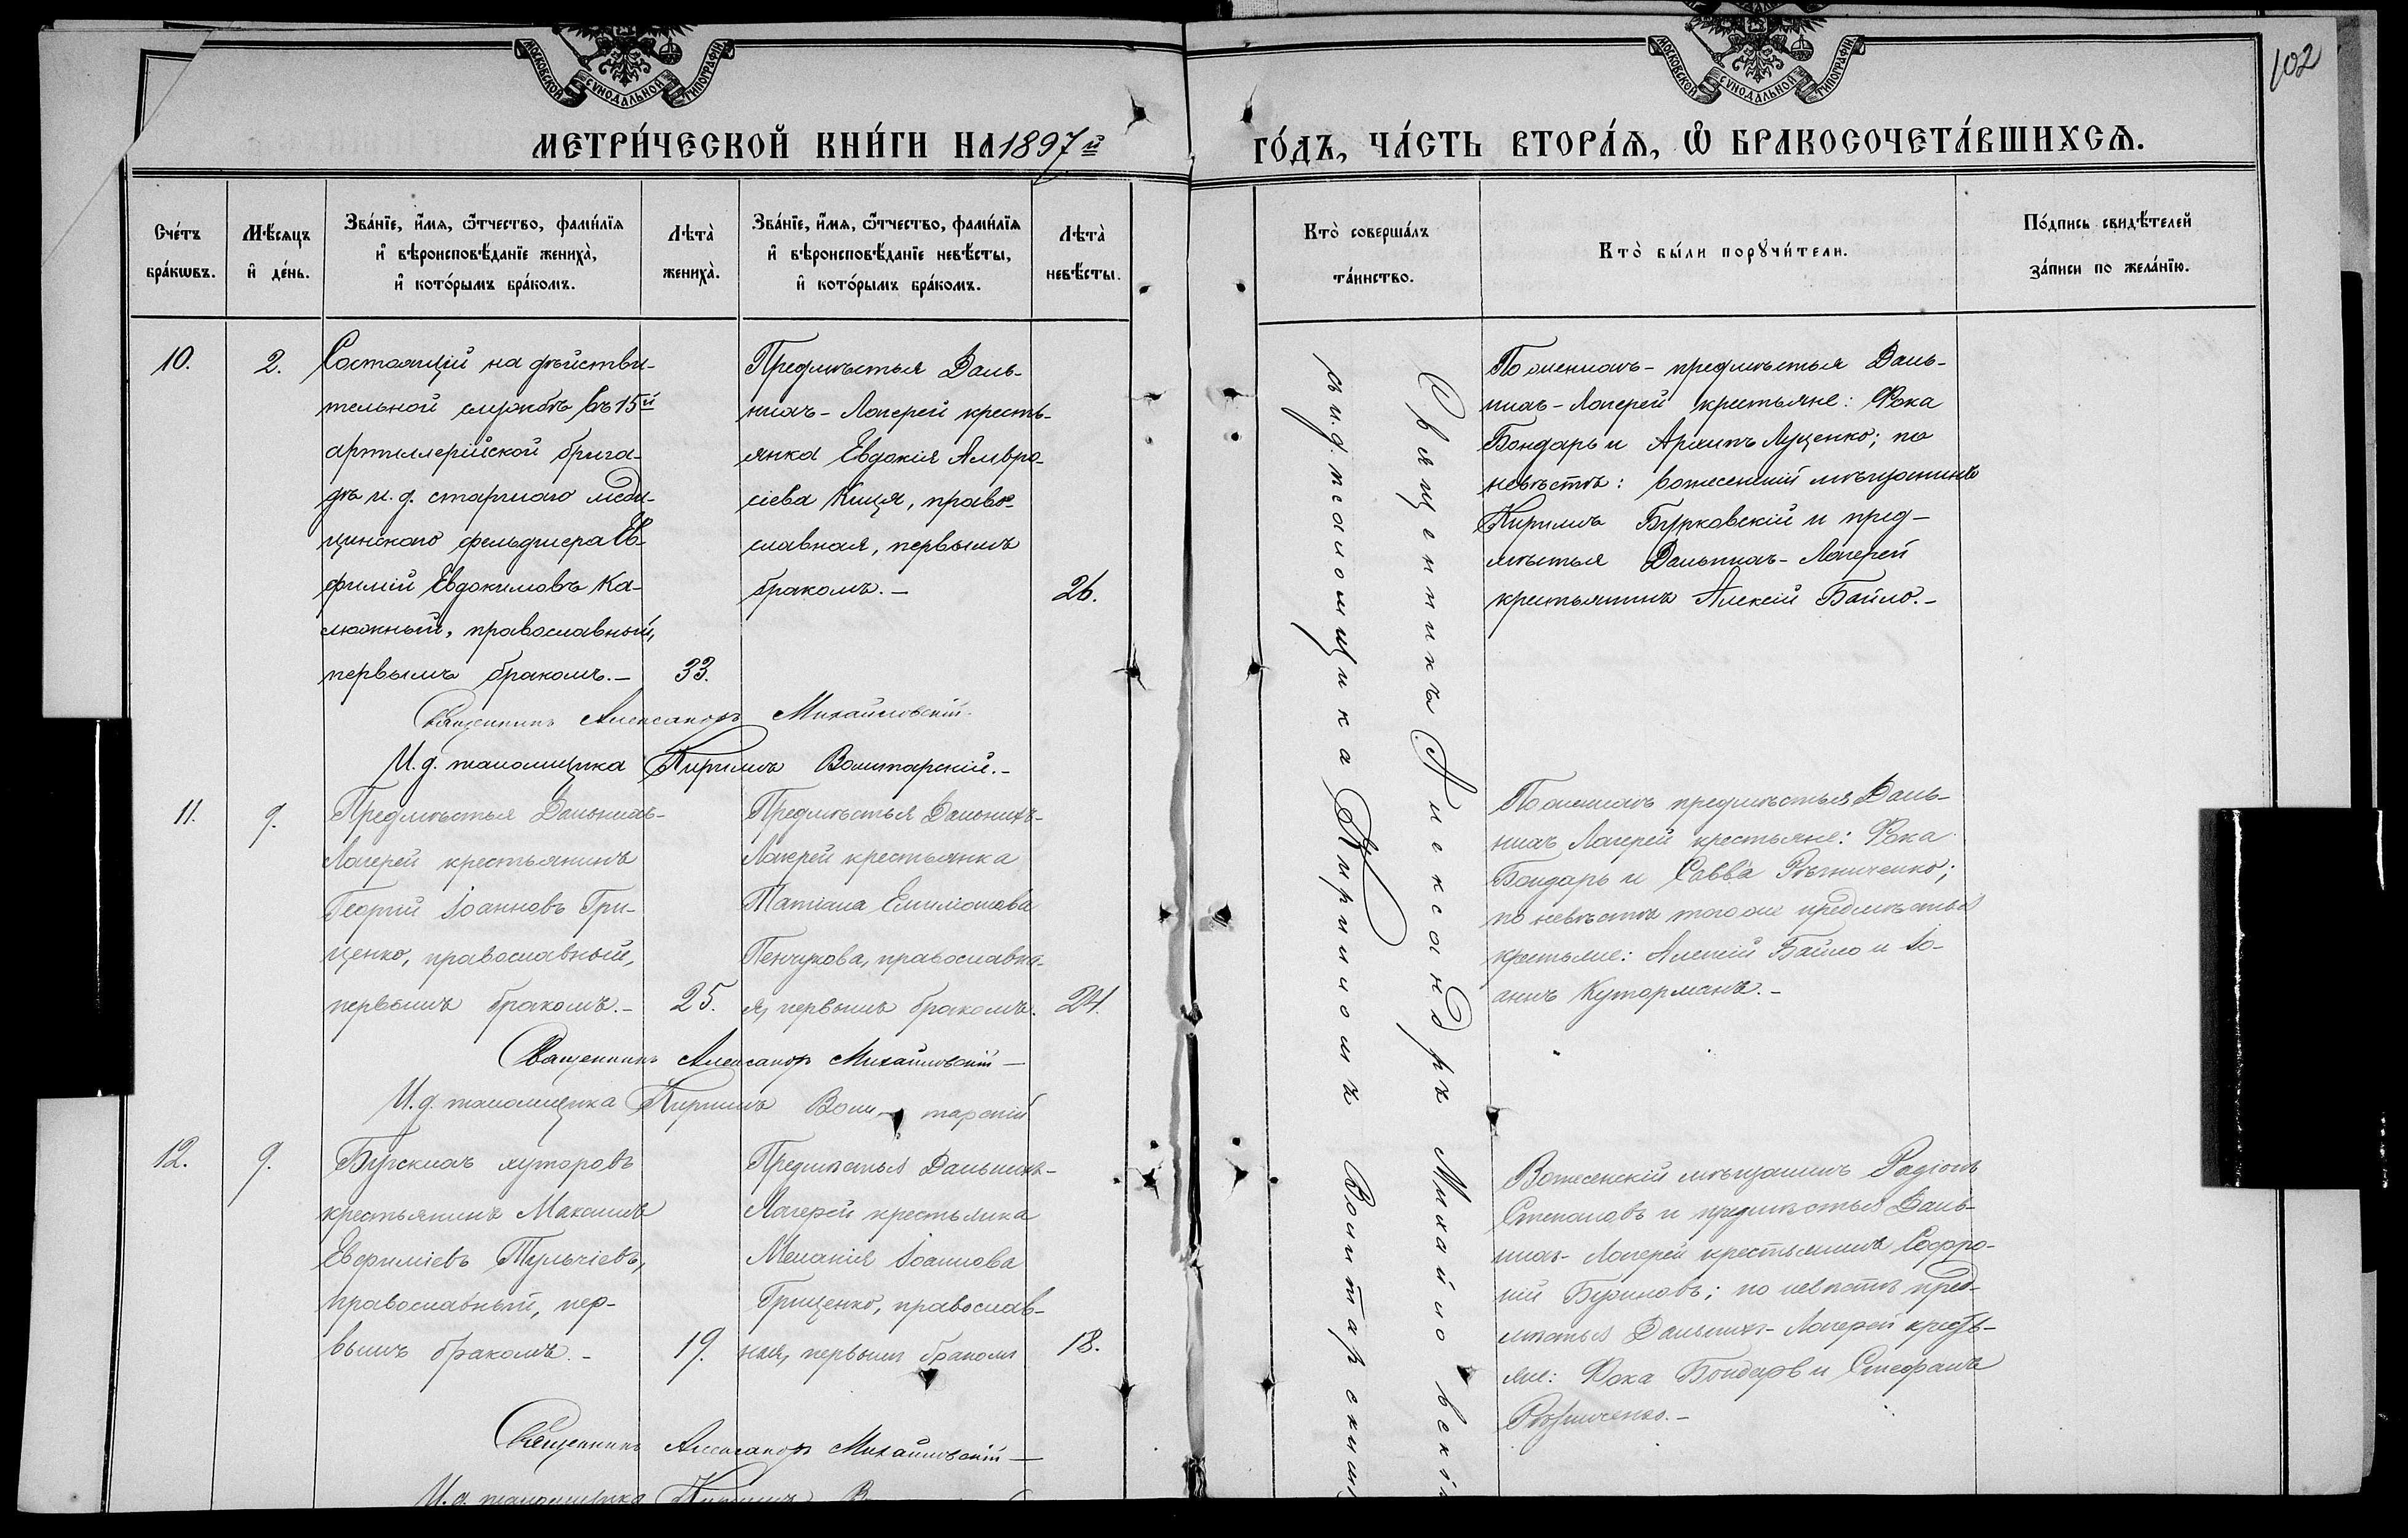 МОСКОВСКОЙ СѴНОДАЛЬНОЙ ТИПОГРАФІИ
МОСКОВСКОЙ СѴНОДАЛЬНОЙ ТИПОГРАФІИ
102
МЕТРИ́ЧЕСКОЙ КНИ́ГИ НА 1897й
ГО́ДЪ, ЧА́СТЬ ВТОРА́Ѧ, Ѽ БРАКОСОЧЕТА́ВШИХСѦ.
Сче́тъ
бра́кѡвъ.
Мѣ́сяцъ
и҆ де́нь.
Зва́нїе, и҆́мя, ѻ҆́тчество, фами́лїя
и҆ вѣроисповѣ́данїе жениха̀,
и҆ кото́рымъ бра́комъ.
Лѣта̀
жениха̀.
Зва́нїе, и҆́мя, ѻ҆́тчество, фами́лїя
и҆ вѣроисповѣ́данїе невѣ́сты,
и҆ кото́рымъ бра́комъ.
Лѣта̀
невѣ́сты.
Кто̀ соверша́лъ
та́инство.
Кто̀ бы́ли порꙋчи́тели.
По́дпись свидѣ́телей
за́писи по жела́нїю.
10.
2.
Состоящій на дѣйстви-
тельной службѣ въ 15й
артиллерійской брига-
дѣ и. д. старшаго меди-
цинскаго фельдшера Ев-
фимій Евдокимовъ Ка-
люжный, православный,
первымъ бракомъ.-
33.
Предмѣстья Даль-
нихъ-Лагерей кресть-
янка Евдокія Амвро-
сіева Кица, право-
славная, первымъ
бракомъ.-
26.
Священникъ Александръ Михайловскій
И. д. псаломщика Кириллъ Волитарскій.-
По женихъ- предмѣстья Даль-
нихъ-Лагерей крестьяне: Фока
Бондарь и Архипъ Луценко; по
невѣстѣ: вознесенскій мѣщанинъ
Кириллъ Бурковскій и пред-
мѣстья Дальнихъ-Лагерей
крестьянинъ Алексій Байло.-
Священникъ Александръ Михайловскій
съ и. д. псаломщика Кирилломъ Волитарскимъ
11.
9.
Предмѣстья Дальнихъ-
Лагерей крестьянинъ
Георгій Іоанновъ Гри-
ценко, православный,
первымъ бракомъ.-
25.
Предмѣстья Дальнихъ-
Лагерей крестьянка
Татіана Емиліанова
Пенчукова, православна-
я, первымъ бракомъ.
24.
Священникъ Александръ Михайловскій-
И. д. псаломщика Кириллъ Воли-тарскій
По женихѣ предмѣстья Даль-
нихъ Лагерей крестьяне: Фока
Бондарь и Савва Рѣзниченко;
по невѣстѣ того же предмѣстья
крестьяне: Алексій Байло и Іо-
аннъ Куторманъ.-
12.
9.
Бугскихъ хуторовъ
крестьянинъ Максимъ
Евфиміевъ Тульчіевъ,
православный, пер-
вымъ бракомъ.-
19.
Предмѣстья Дальнихъ-
Лагерей крестьянка
Меланія Іоаннова
Гриценко, православ-
ная, первымъ бракомъ
18.
Священникъ Александръ Михайловскій-
И. д. псаломщика Кириллъ
Вознесенскій мѣщанинъ Родіонъ
Степановъ и предмѣстья Даль-
нихъ-Лагерей крестьянинъ Софро-
ній Бужновъ; по невѣстѣ пред-
мѣстья Дальнихъ-Лагерей кресть-
яне: Фока Бондарь и Стефанъ
Рѣзниченко.-